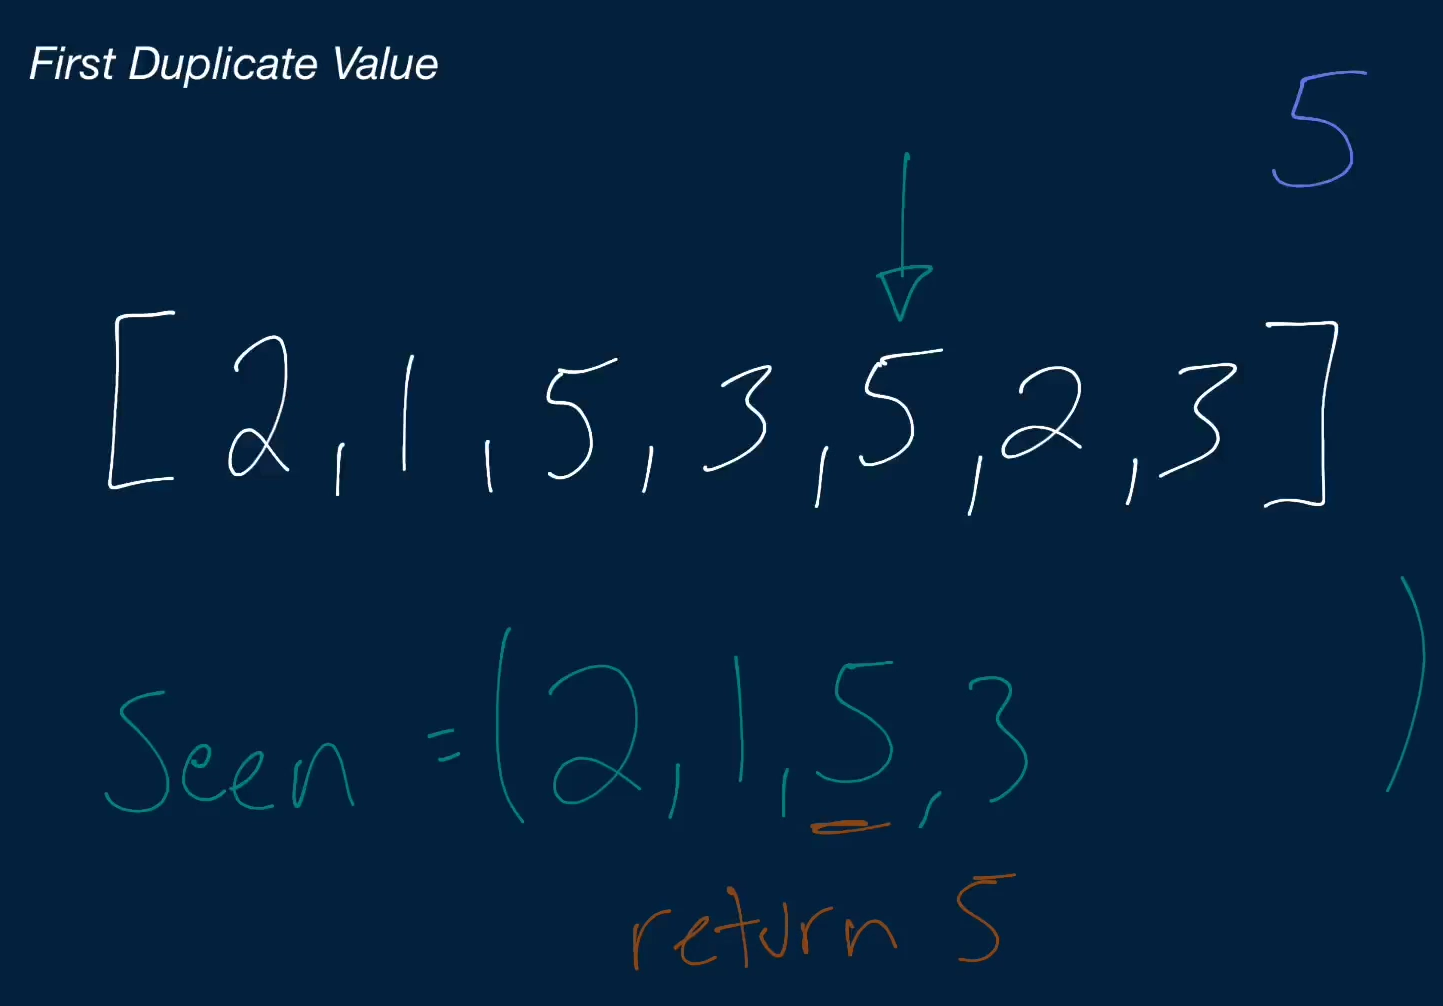 First Duplicate Value
5
[2,1,5,3,5,2,3]
Seen = (2,1,5,3 )
return 5